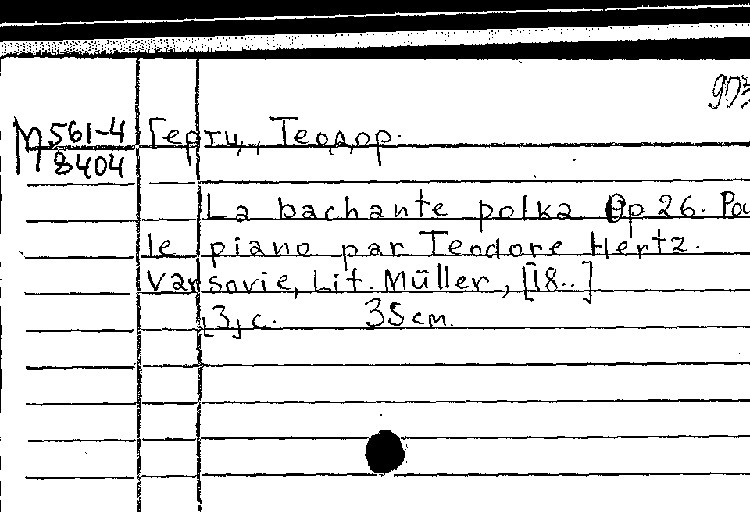 903
М 561-4 Гертц, Теодор.
8404
La bachante polka Op 26. Pou
le piano par Teodore Hertz.
Varsovie, Lit. Müller, [18..]
[3] с. 35 см.